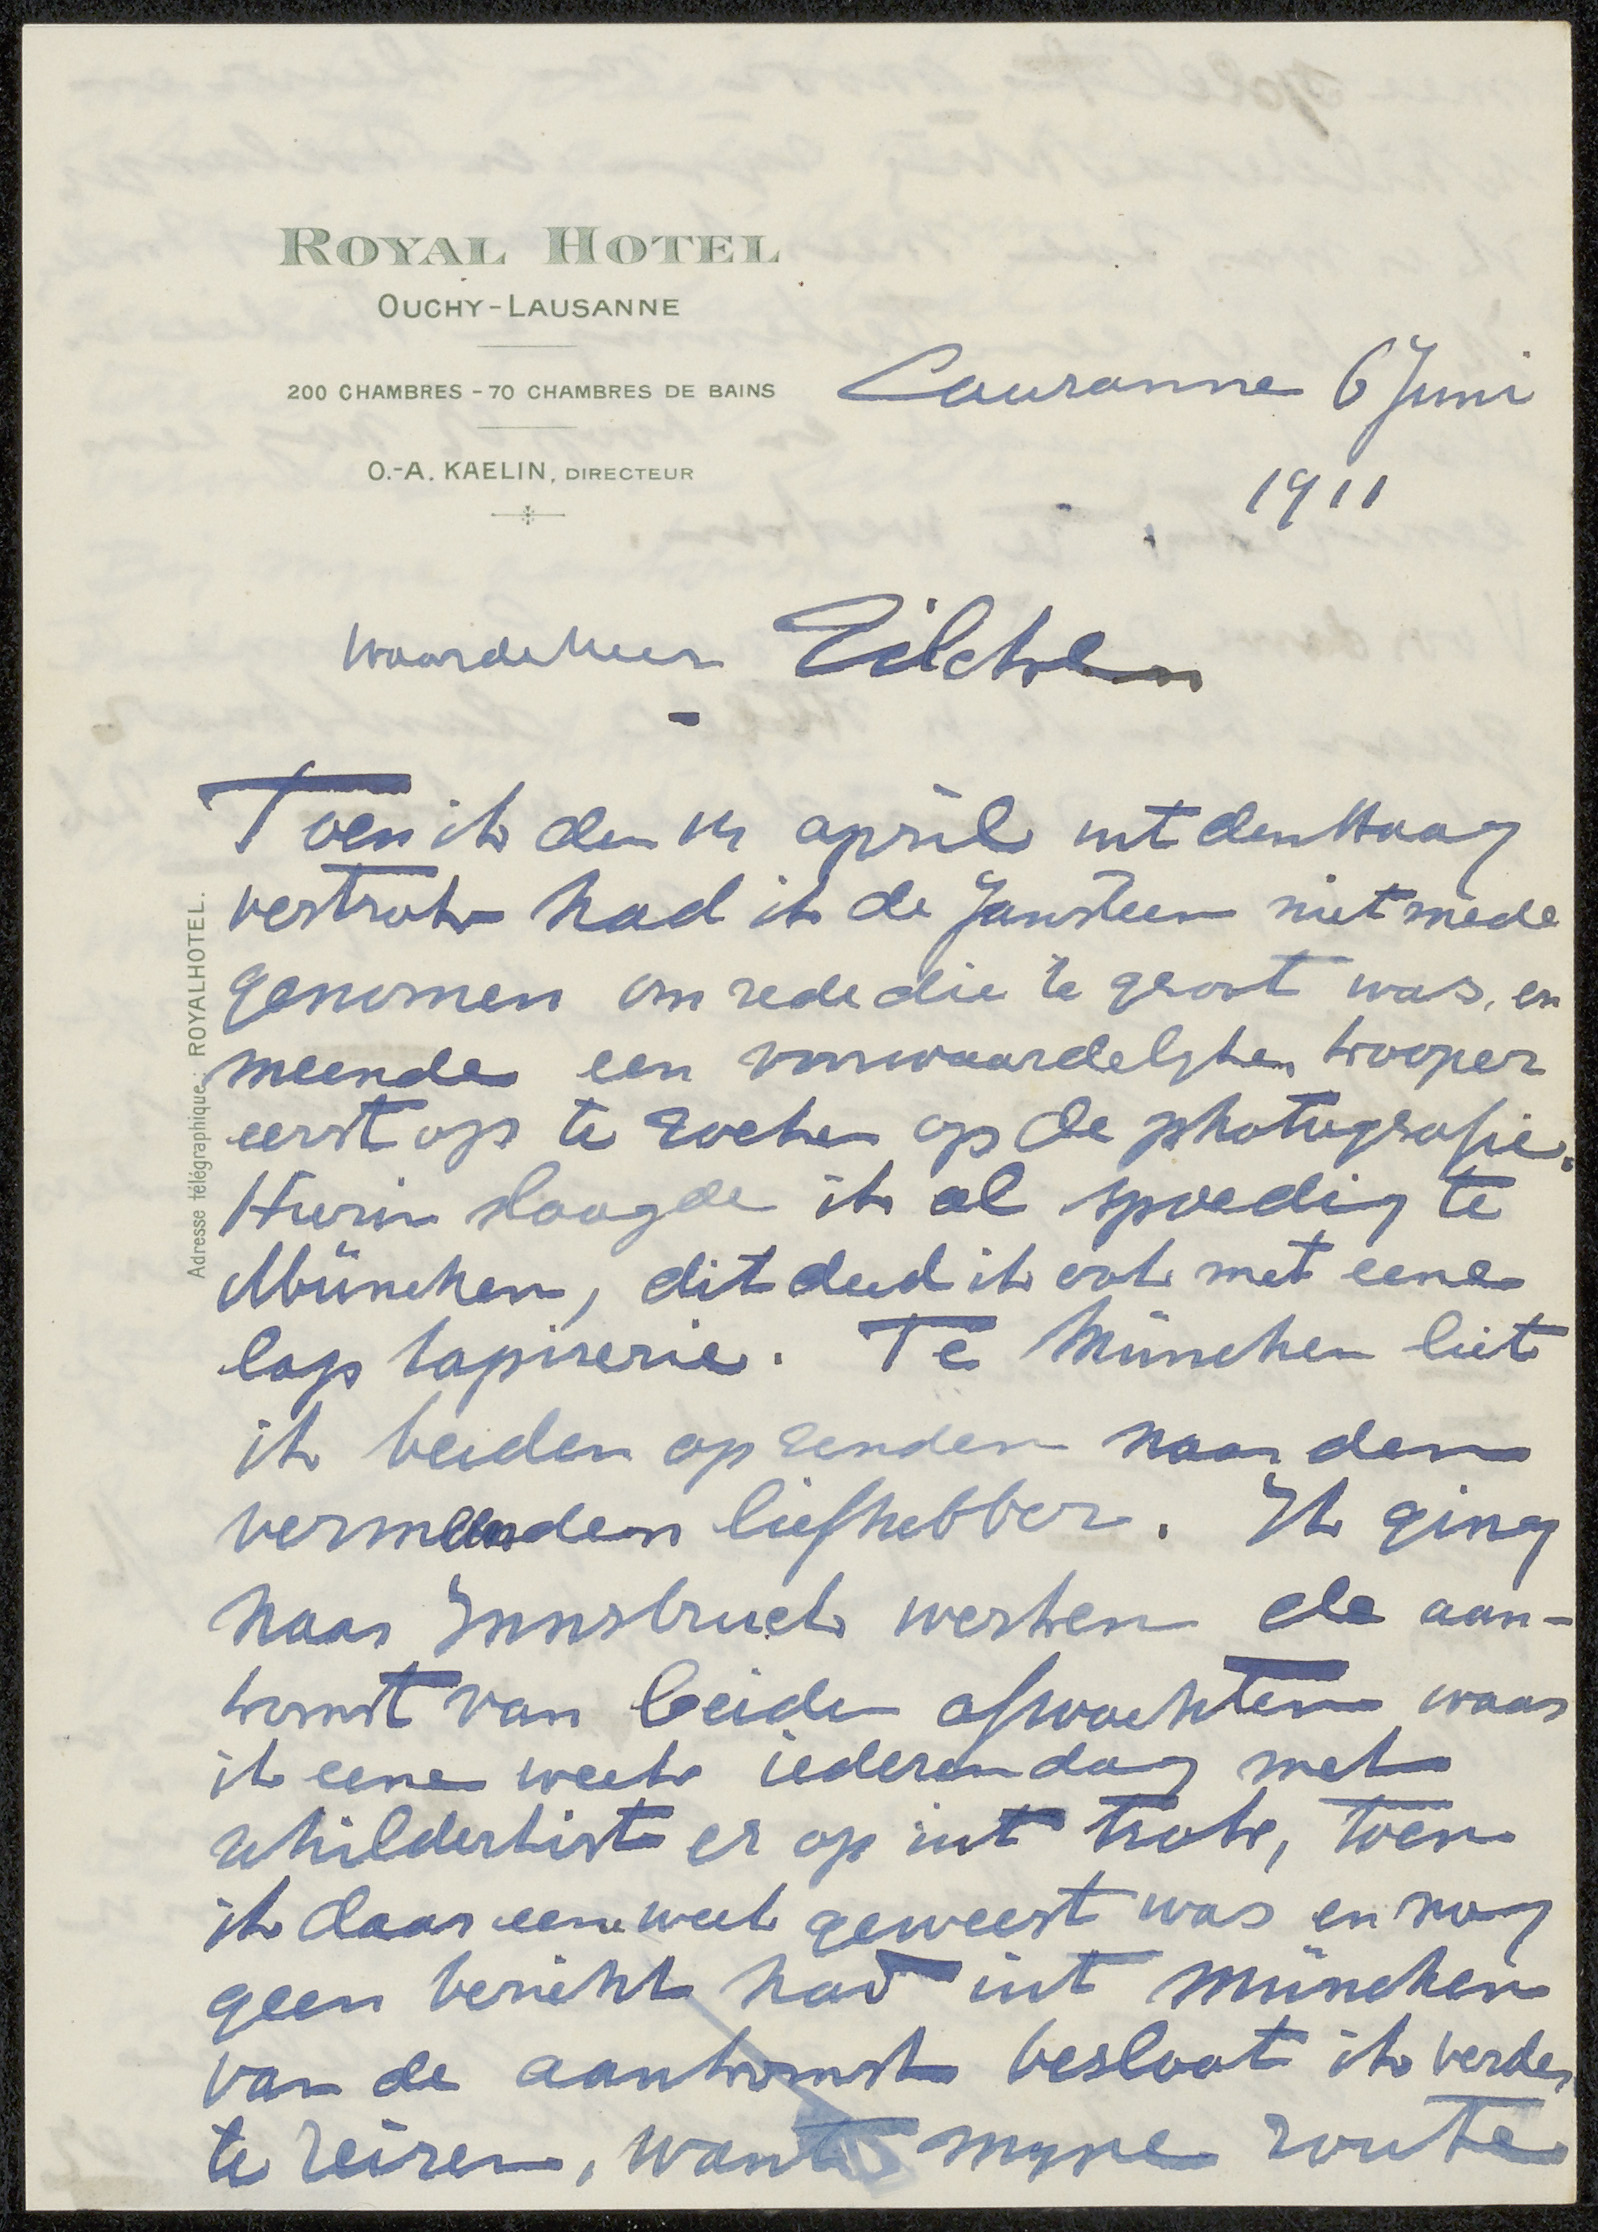 ROYAL HOTEL
OUCHY-LAUSANNE
200 CHAMBRES - 70 CHAMBRES DE BAINS
O.-A. KAELIN, DIRECTEUR
Adresse télégraphique: ROYALHOTEL.
Lausanne 6 Juni
1911
Waarde Heer Zilcken
Toen ik den 14 april uit den Haag
vertrok had ik de Jansteen niet mede
genomen om rede die te groot was, en
meende een voorwaardelyken kooper
eerst op te zoeken op de photografie.
Hierin slaagde ik al spoedig te
München, dit deed ik ook met eene
lap tapiserie. Te München liet
ik beiden op zenden naar den
vermeenden liefhebber. Ik ging
naar Innsbruck werken de aan-
komst van beide afwachten waar
ik eene week iederen dag met
schilderkist er op uit trok, toen
ik daar eene week geweest was en nog
geen bericht had uit München
van de aankomst besloot ik verder
te reizen, want myne route